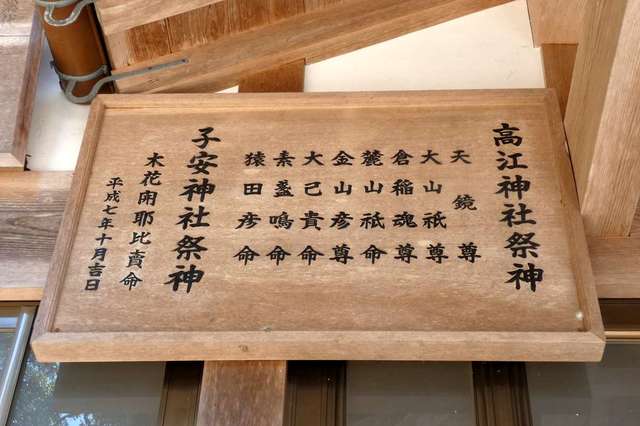 高江神社祭神
天鏡尊
大山祇尊
倉稲魂尊
麓山祇命
金山彦尊
大己貴命
素盞鳴命
猿田彦命
子安神社祭神
木花開耶比賣命
平成七年十月吉日